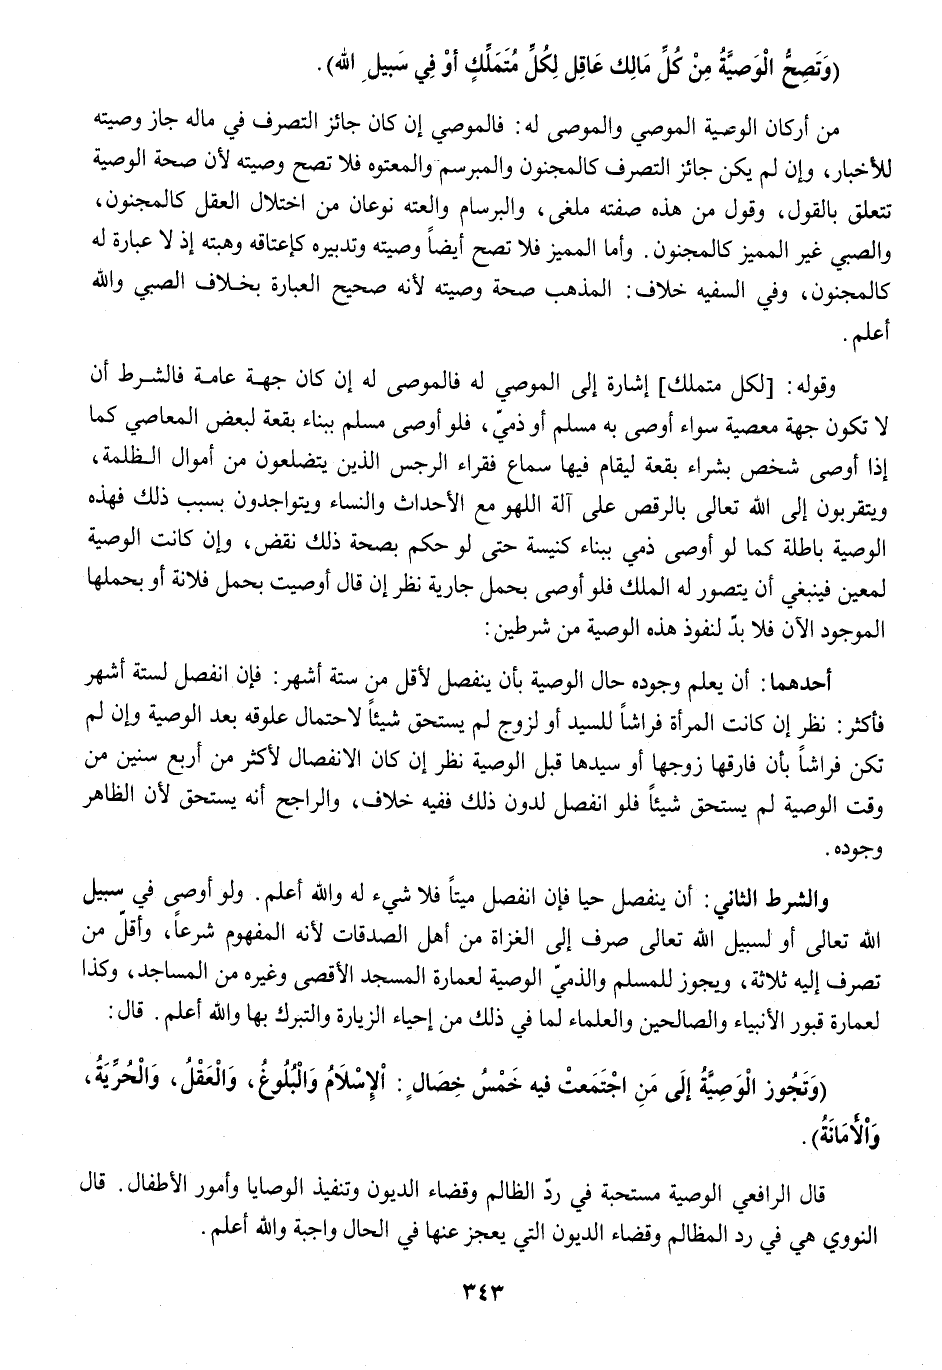 (وَتَصِحُّ الْوَصيَّةُ مِنْ كُلِّ مَالِك عَاقِل لِكُلِّ مُتَمَلِّكٍ أوْ فِي سَبِيلِ الله).
من أركان الوصية الموصي والموصى له: فالموصي إن كان جائز التصرف في ماله جاز وصيته
للأخبار، وإن لم يكن جائز التصرف كالمجنون والمبرسم والمعتوه فلا تصح وصيته لأن صحة الوصية
تتعلق بالقول، وقول من هذه صفته ملغى، والبرسام والعته نوعان من اختلال العقل كالمجنون،
والصبي غير المميز كالمجنون. وأما المميز فلا تصح أيضاً وصيته وتدبيره كإعتاقه وهبته إذ لا عبارة له
كالمجنون، وفي السفيه خلاف: المذهب صحة وصيته لأنه صحيح العبارة بخلاف الصبي والله
أعلم.
وقوله: [لكل متملك] إشارة إلى الموصي له فالموصى له إن كان جهة عامة فالشرط أن
لا تكون جهة معصية سواء أوصى به مسلم أو ذميّ، فلو أوصى مسلم ببناء بقعة لبعض المعاصي كما
إذا أوصى شخص بشراء بقعة ليقام فيها سماع فقراء الرجس الذين يتضلعون من أموال الظلمة،
ويتقربون إلى الله تعالى بالرقص على آلة اللهو مع الأحداث والنساء ويتواجدون بسبب ذلك فهذه
الوصية باطلة كما لو أوصى ذمي ببناء كنيسة حتى لو حكم بصحة ذلك نقض، وإن كانت الوصية
لمعين فينبغي أن يتصور له الملك فلو أوصى بحمل جارية نظر إن قال أوصيت بحمل فلانة أو بحملها
الموجود الآن فلا بدّ لنفوذ هذه الوصية من شرطين:
أحدهما: أن يعلم وجوده حال الوصية بأن ينفصل لأقل من ستة أشهر: فإن انفصل لستة أشهر
فأكثر: نظر إن كانت المرأة فراشاً للسيد أو لزوج لم يستحق شيئاً لاحتمال علوقه بعد الوصية وإن لم
تكن فراشاً بأن فارقها زوجها أو سيدها قبل الوصية نظر إن كان الانفصال لأكثر من أربع سنين من
وقت الوصية لم يستحق شيئاً فلو انفصل لدون ذلك ففيه خلاف، والراجح أنه يستحق لأن الظاهر
وجوده.
والشرط الثاني: أن ينفصل حيا فإن انفصل ميتاً فلا شيء له والله أعلم. ولو أوصى في سبيل
الله تعالى أو لسبيل الله تعالى صرف إلى الغزاة من أهل الصدقات لأنه المفهوم شرعاً، وأقلّ من
تصرف إليه ثلاثة، ويجوز للمسلم والذميّ الوصية لعمارة المسجد الأقصى وغيره من المساجد، وكذا
لعمارة قبور الأنبياء والصالحين والعلماء لما في ذلك من إحياء الزيارة والتبرك بها والله أعلم. قال:
(وَتَجُوز الْوَصِيَّةُ إلَى مَنِ اجْتَمَعتْ فيه خَمْسُ خِصَالٍ: ألإِسْلَامُ وَالْبُلُوغُ، وَالْعَقْلُ، وَالْحُرِّيَةُ،
وَالْأَمَانَةُ).
قال الرافعي الوصية مستحبة في ردّ الظالم وقضاء الديون وتنفيذ الوصايا وأمور الأطفال. قال
النووي هي في رد المظالم وقضاء الديون التي يعجز عنها في الحال واجبة والله أعلم.
٣٤٣